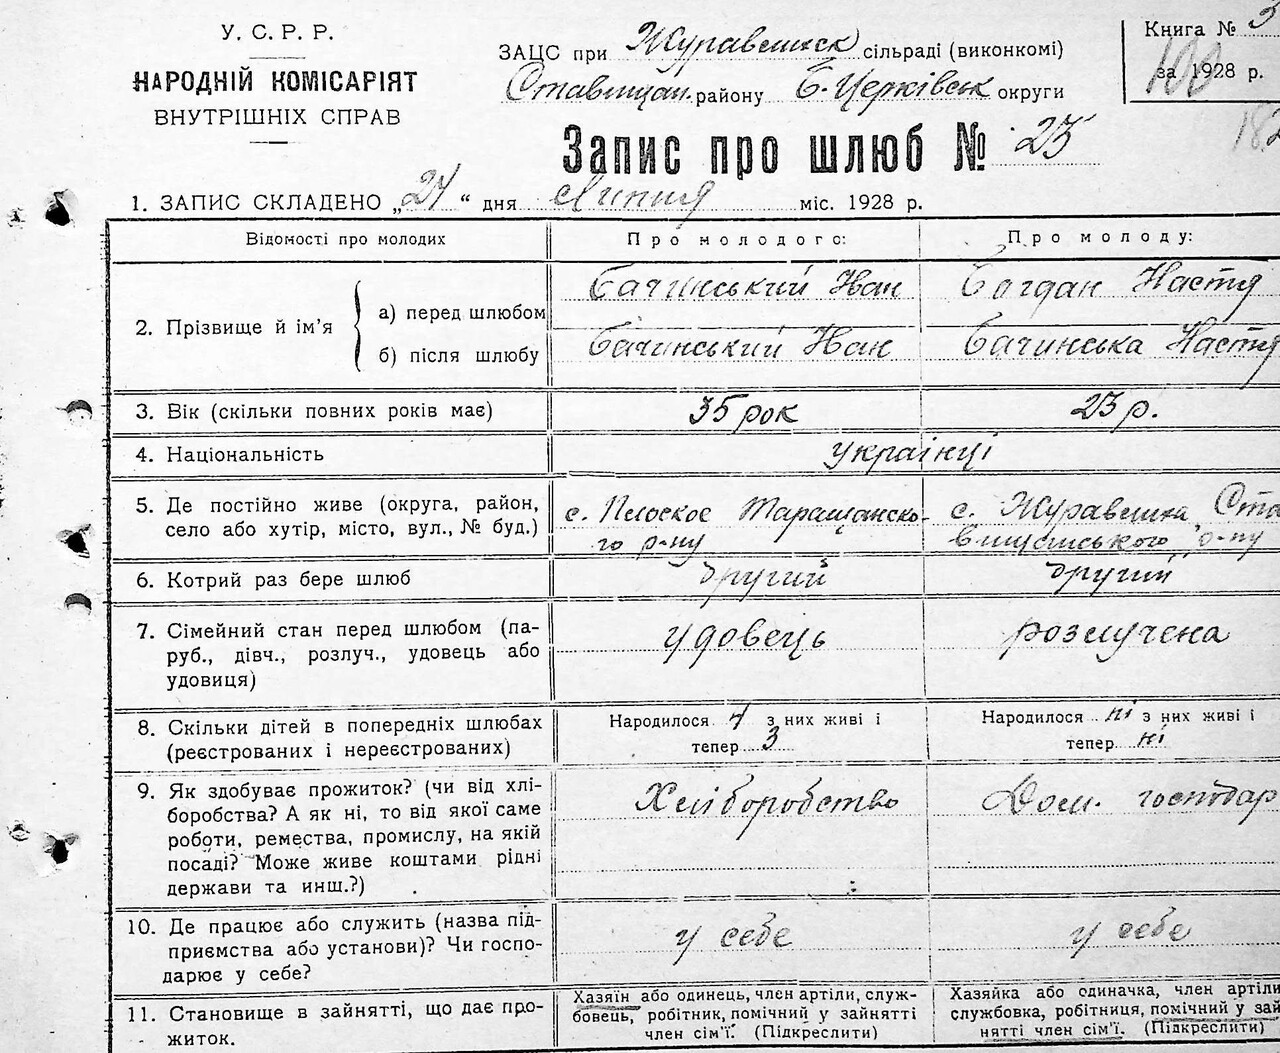 У. С. Р. Р.
НАРОДНІЙ КОМІСАРІЯТ
ВНУТРІШНІХ СПРАВ
ЗАЦС при Журавлиск сільраді (виконкомі)
Ставищан. району Б. Церківськ округи
Книга № 3
за 1928 р.
100
Запис про шлюб № 23
1. ЗАПИС СКЛАДЕНО „24 “ дня Липня міс. 1928 р.
Відомості про молодих
Про молодого:
Про молоду:
2. Прізвище й ім’я
а) перед шлюбом
Бачинський Іван
Богдан Настя
б) після шлюбу
Бачинський Іван
Бачинська Настя
3. Вік (скільки повних років має)
35 рок
23 р.
4. Національність
українці
5. Де постійно живе (округа, район,
село або хутір, місто, вул., № буд.)
с. Плоское Таращанско-
го р-ну
с. Журавлиха, Ста
вищанського р-ну
6. Котрий раз бере шлюб
другий
другий
7. Сімейний стан перед шлюбом (па-
руб., дівч., розлуч., удовець або
удовиця)
удовець
розлучена
8. Скільки дітей в попередніх шлюбах
(реєстрованих і нереєстрованих)
Народилося 4 з них живі і
тепер 3
Народилося ні з них живі і
тепер ні
9. Як здобуває прожиток? (чи від хлі-
боробства? А як ні, то від якої саме
роботи, ремества, промислу, на якій
посаді? Може живе коштами рідні
держави та инш.?)
Хліборобство
Дом. господар
10. Де працює або служить (назва під-
приємства або установи)? Чи госпо-
дарює у себе?
у себе
у себе
11. Становище в зайнятті, що дає про-
житок.
Хазяїн або одинець, член артіли, служ-
бовець, робітник, помічний у зайнятті
член сім’ї. (Підкреслити)
Хазяйка або одиначка, член артіли
службовка, робітниця, помічний у зай
нятті член сім’ї. (Підкреслити)